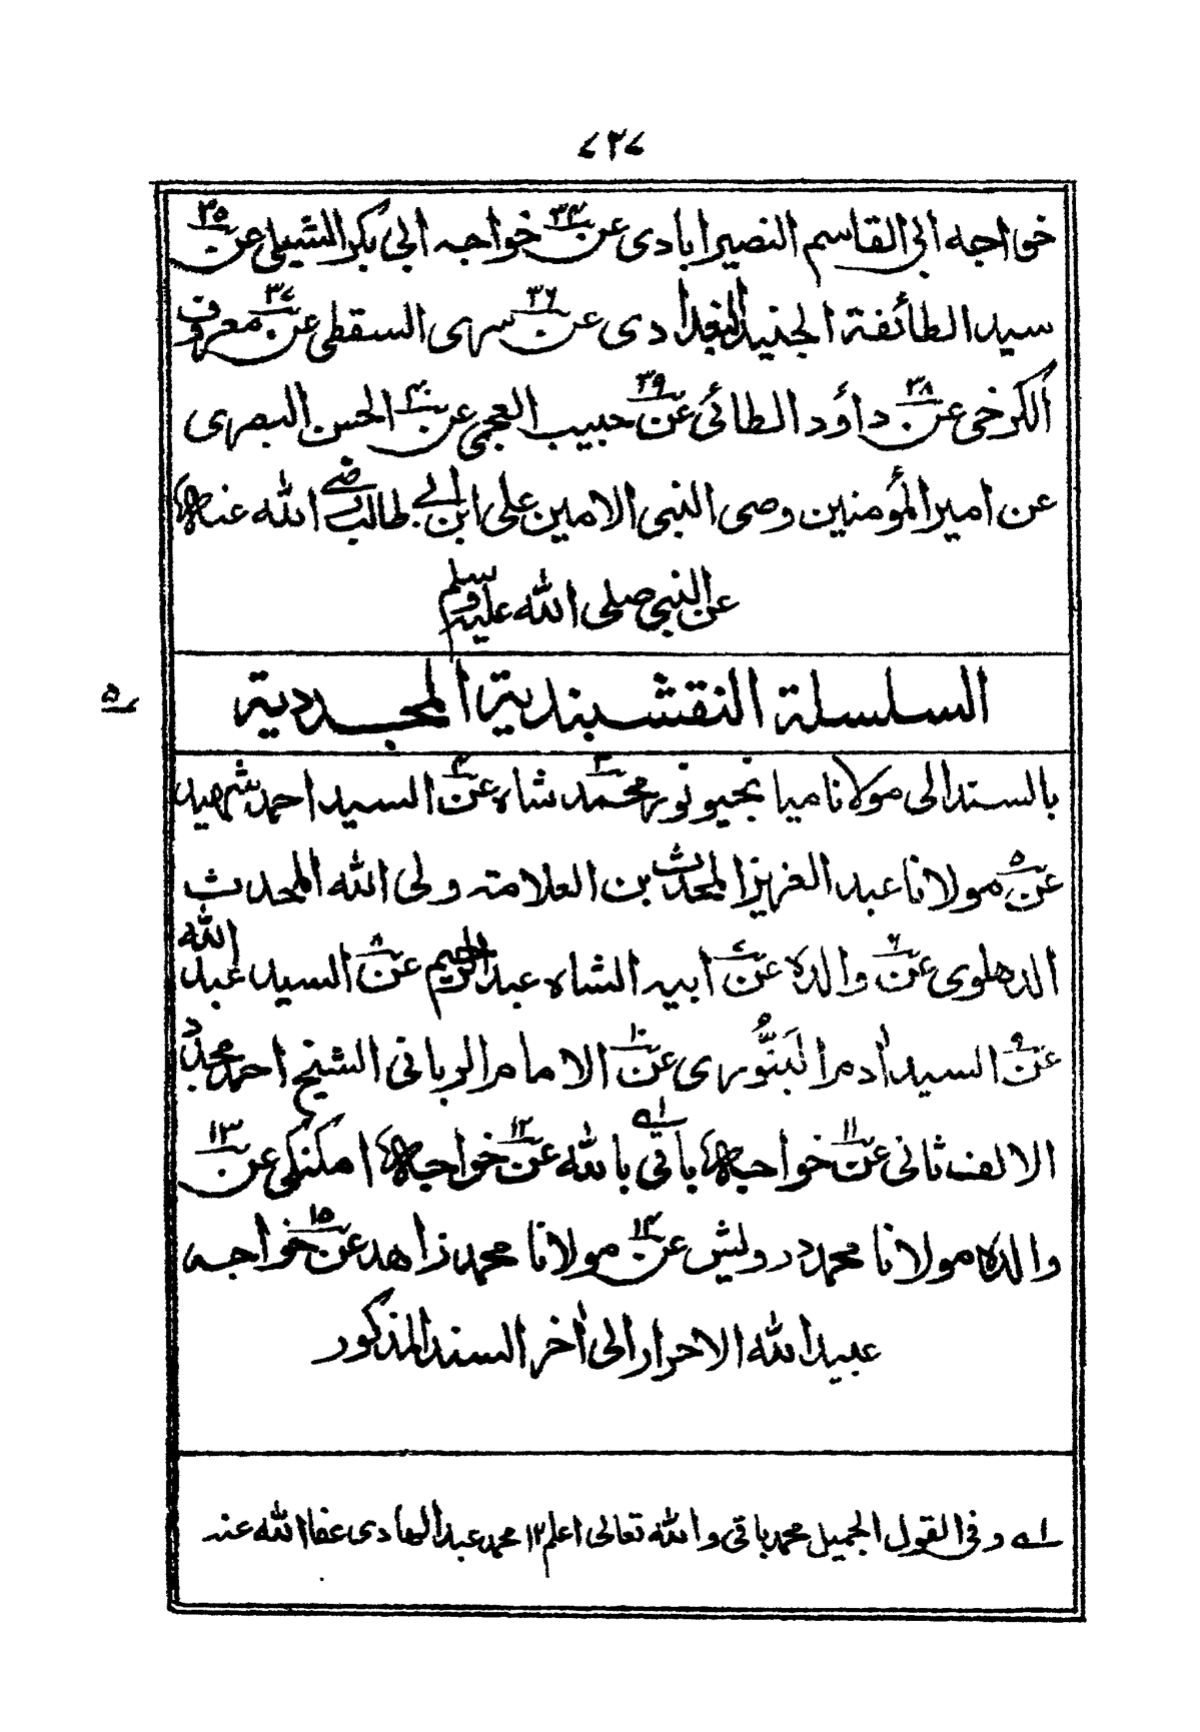 ۷۲۷
خواجه ابی القاسم النصیرابادی عن ۳۴ خواجه ابی بکر الشبلی عن ۳۵
سید الطائفة الجنید البغدادی عن ۳۶ سری السقطی عن ۳۷ معروف
الکرخی عن ۳۸ داؤد الطائی عن ۳۹ حبیب العجمی عن ۴۰ الحسن البصری
عن امیر المؤمنین وصی النبی الامین علی ابن ابی طالب رضی الله عنه
عن النبی صلی الله علیه وسلم
السلسلة النقشبندیة المجددیة
۵
بالسند الی مولانا میانجیو نور محمد شاه عن ۴ السید احمد شهید
عن ۵ مولانا عبد العزیز المحدث بن العلامة ولی الله المحدث
الدهلوی عن ۶ والده عن ۷ ابیه الشاه عبد الرحیم عن ۸ السید عبد الله
عن ۹ السید اٰدم البَنُّوری عن ۱۰ الامام الربانی الشیخ احمد مجدد
الالف ثانی عن ۱۱ خواجه باقی بالله عن ۱۲ خواجه امکنگی عن ۱۳
والده مولانا محمد درویش عن ۱۴ مولانا محمد زاهد عن ۱۵ خواجه
عبید الله الاحرار الی اٰخر السند المذکور
۱ وفی القول الجمیل محمد باقی والله تعالی اعلم ۱۲ محمد عبد الهادی عفا الله عنه